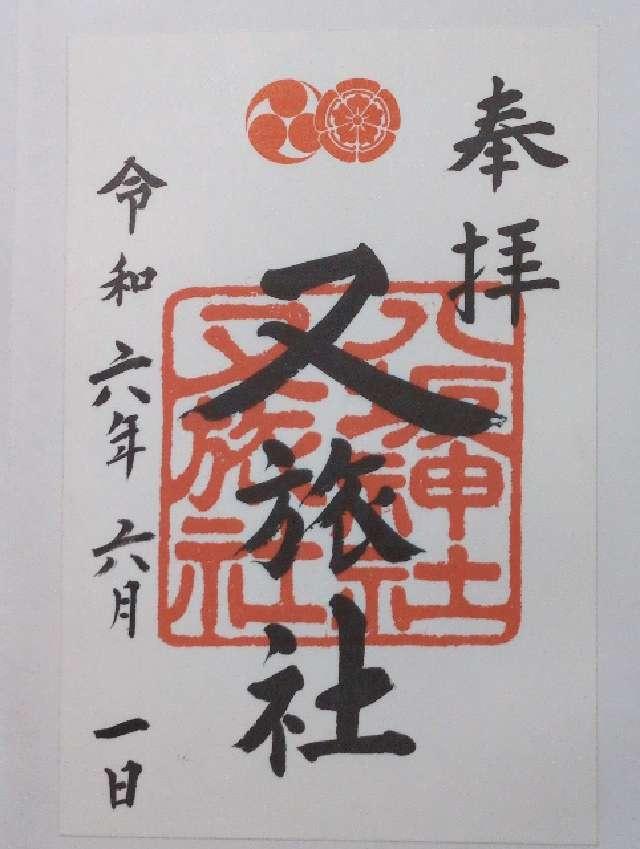 奉拝
又旅社
八坂神社
又旅社
令和六年六月一日